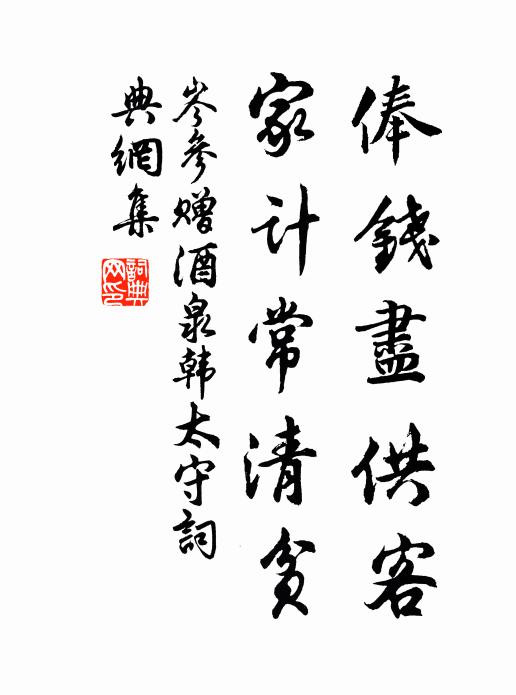 俸錢盡供客
家计常清貧
岑參赠酒泉韩太守詞
典網集
詞典
网印